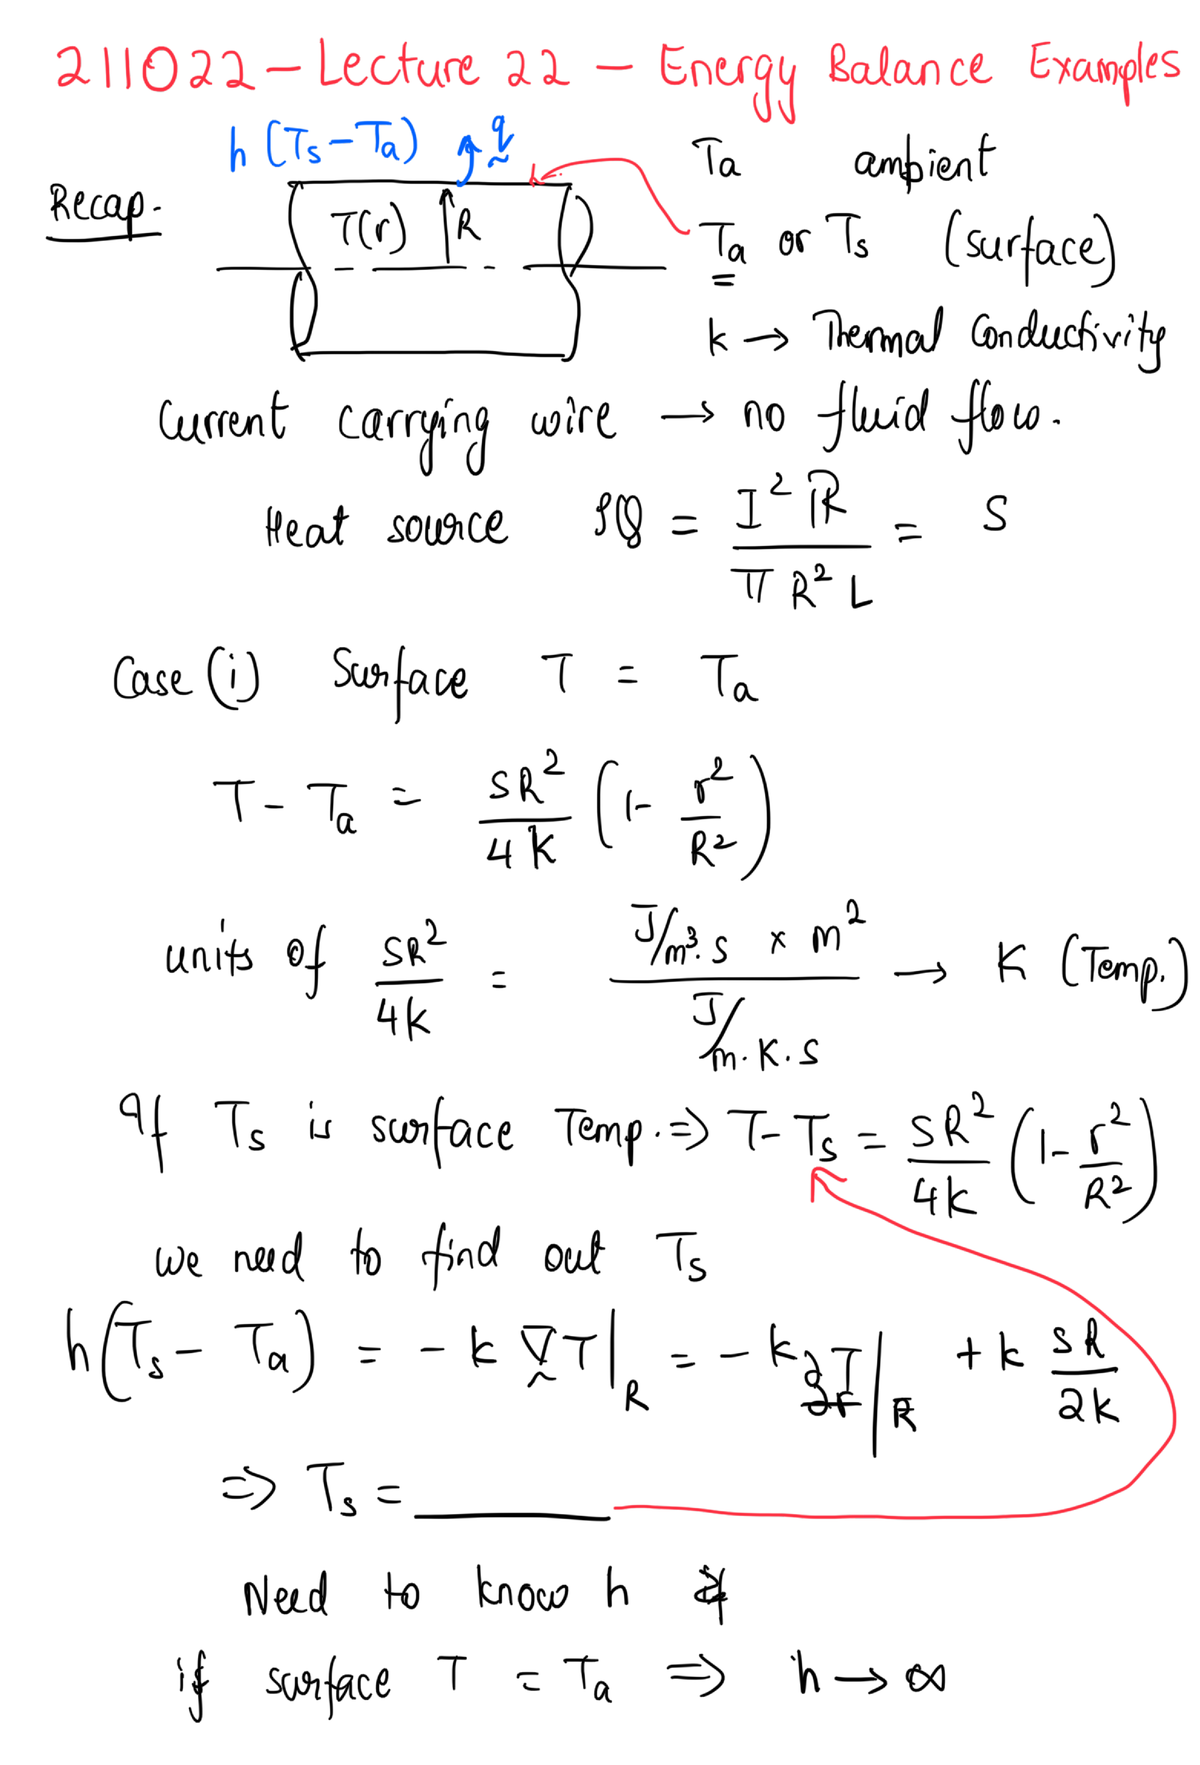 211022 – Lecture 22 – Energy Balance Examples
h (Ts – Ta) q
Ta ambient
Recap.
T(r) R
Ta or Ts (surface)
k → Thermal Conductivity
Current carrying wire → no fluid flow.
Heat source ρQ = I² R / π R² L = S
Case (i) Surface T = Ta
T – Ta = SR² / 4k (1 – r² / R²)
units of SR² / 4k = J/m³.s × m² / J/m.K.s → K (Temp.)
If Ts is surface Temp. ⇒ T – Ts = SR² / 4k (1 – r² / R²)
we need to find out Ts
h(Ts – Ta) = – k ∇T|R = – k ∂T/∂r|R + k SR / 2k
⇒ Ts = ______
Need to know h
if surface T = Ta ⇒ h → ∞